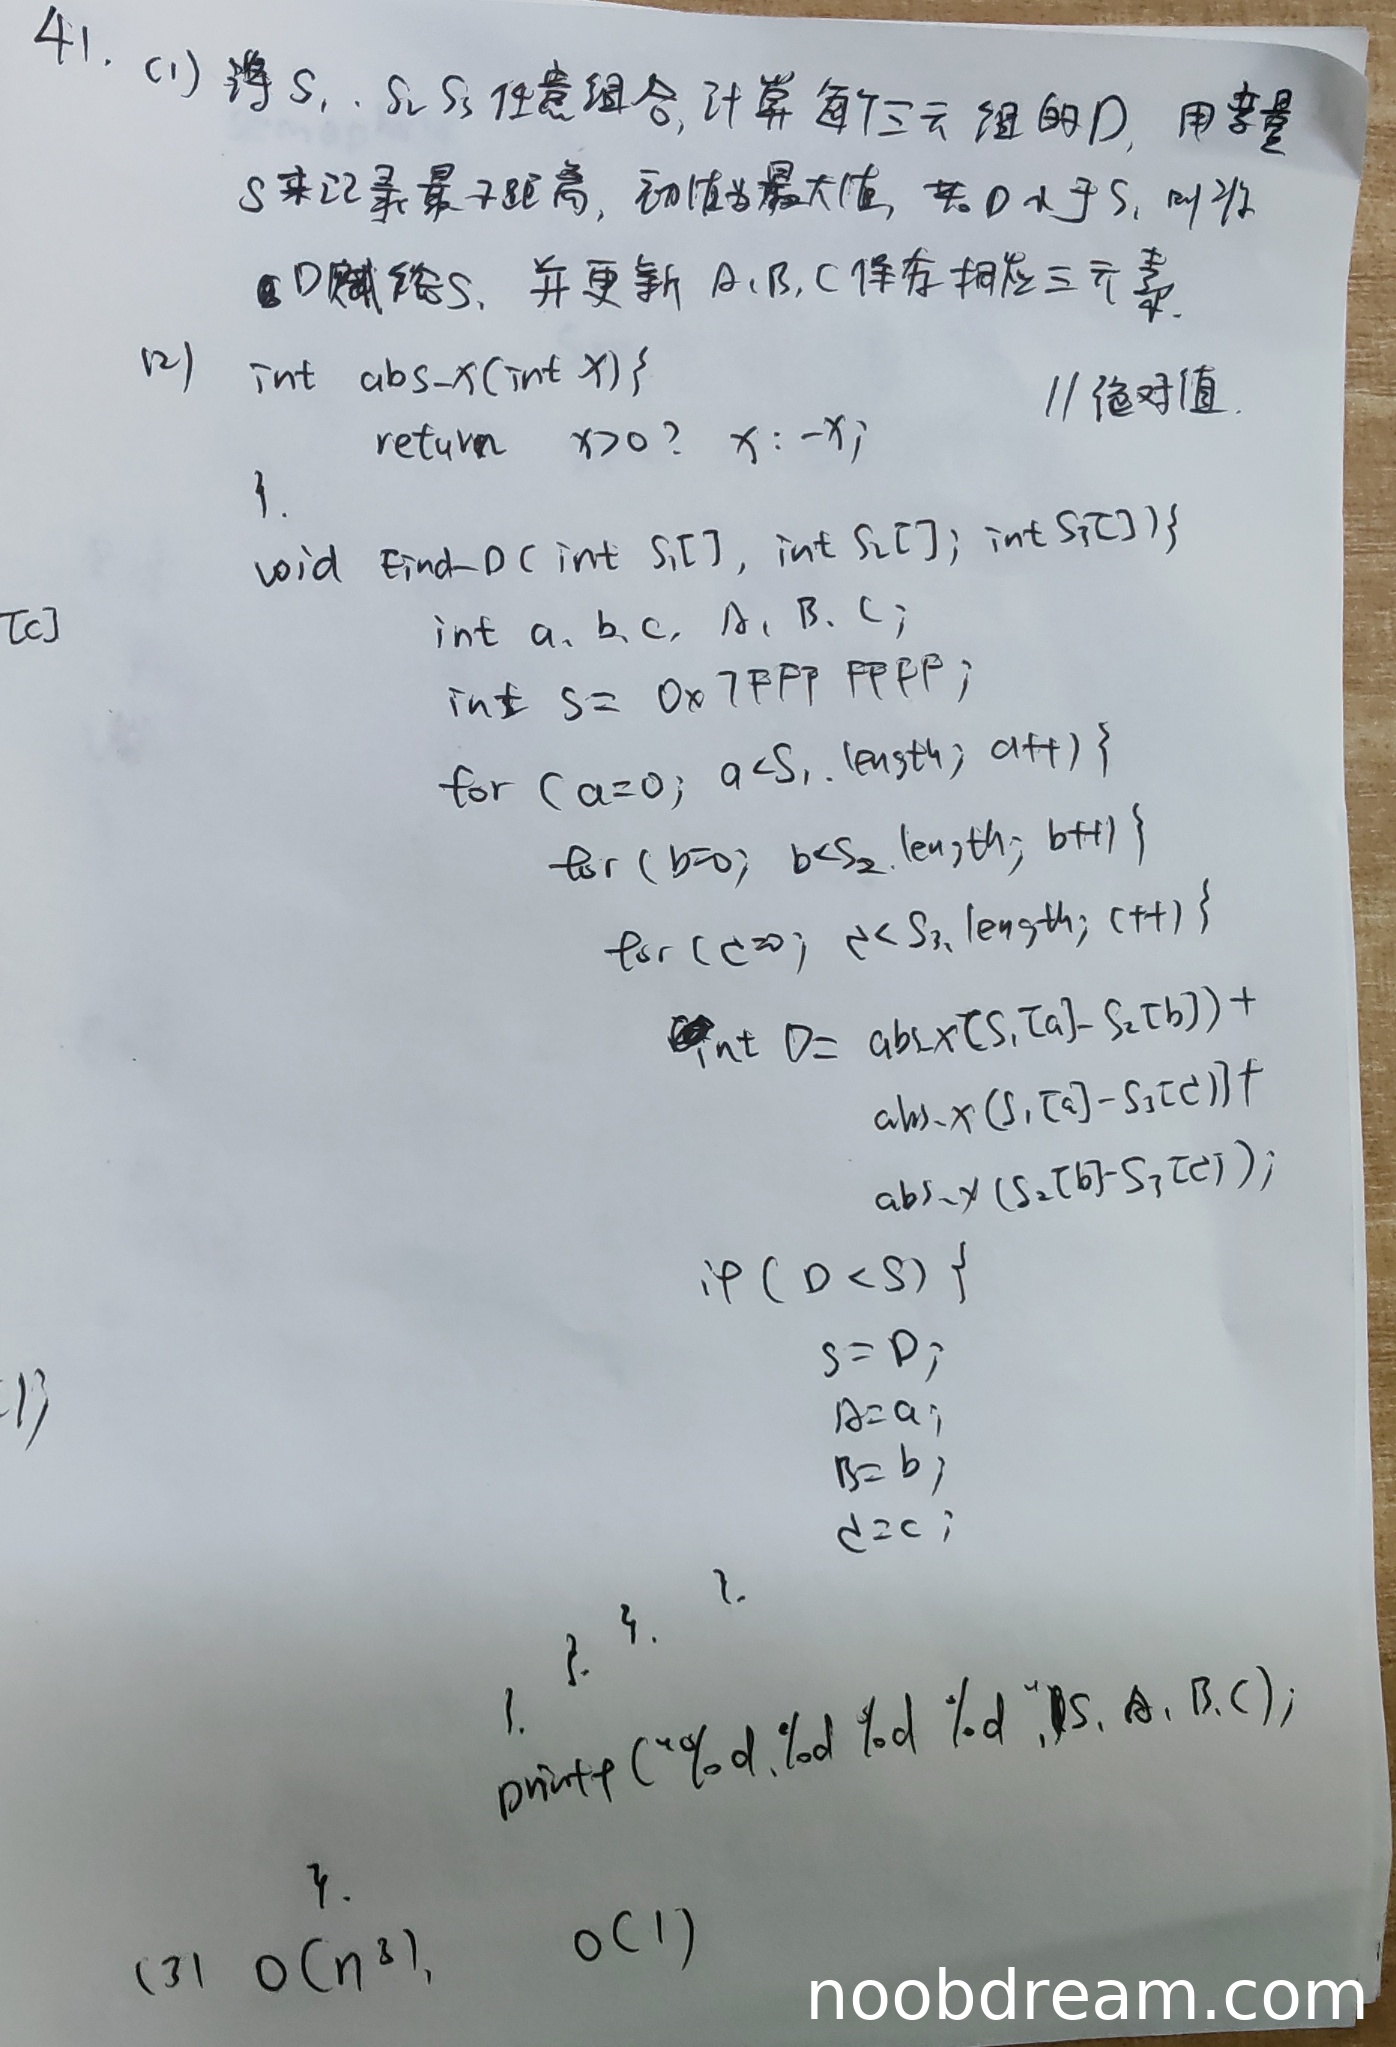 41.
(1) 将S1、S2 S3任意组合,计算每个三元组的D,用变量
S来记录最小距离,初值为最大值,若D小于S,则将
D赋给S,并更新A、B、C保存相应三元素.
(2) int abs_x(int x){ //绝对值.
return x>0? x:-x;
}.
void Find_D(int S1[], int S2[]; int S3[]){
[c]
int a、b、c、A、B、C;
int S= 0x7FFF FFFF;
for (a=0; a<S1.length; a++){
for(b=0; b<S2.length; b++){
for(c=0; c<S3.length; c++){
int D= abs_x[S1[a]-S2[b])+
abs_x(S1[a]-S3[c])+
abs_x(S2[b]-S3[c]);
if(D<S){
S=D;
A=a;
B=b;
C=c;
}.
}.
}.
}.
printf("%d、%d %d %d",S、A、B、C);
}.
(3) O(n³), O(1)
noobdream.com